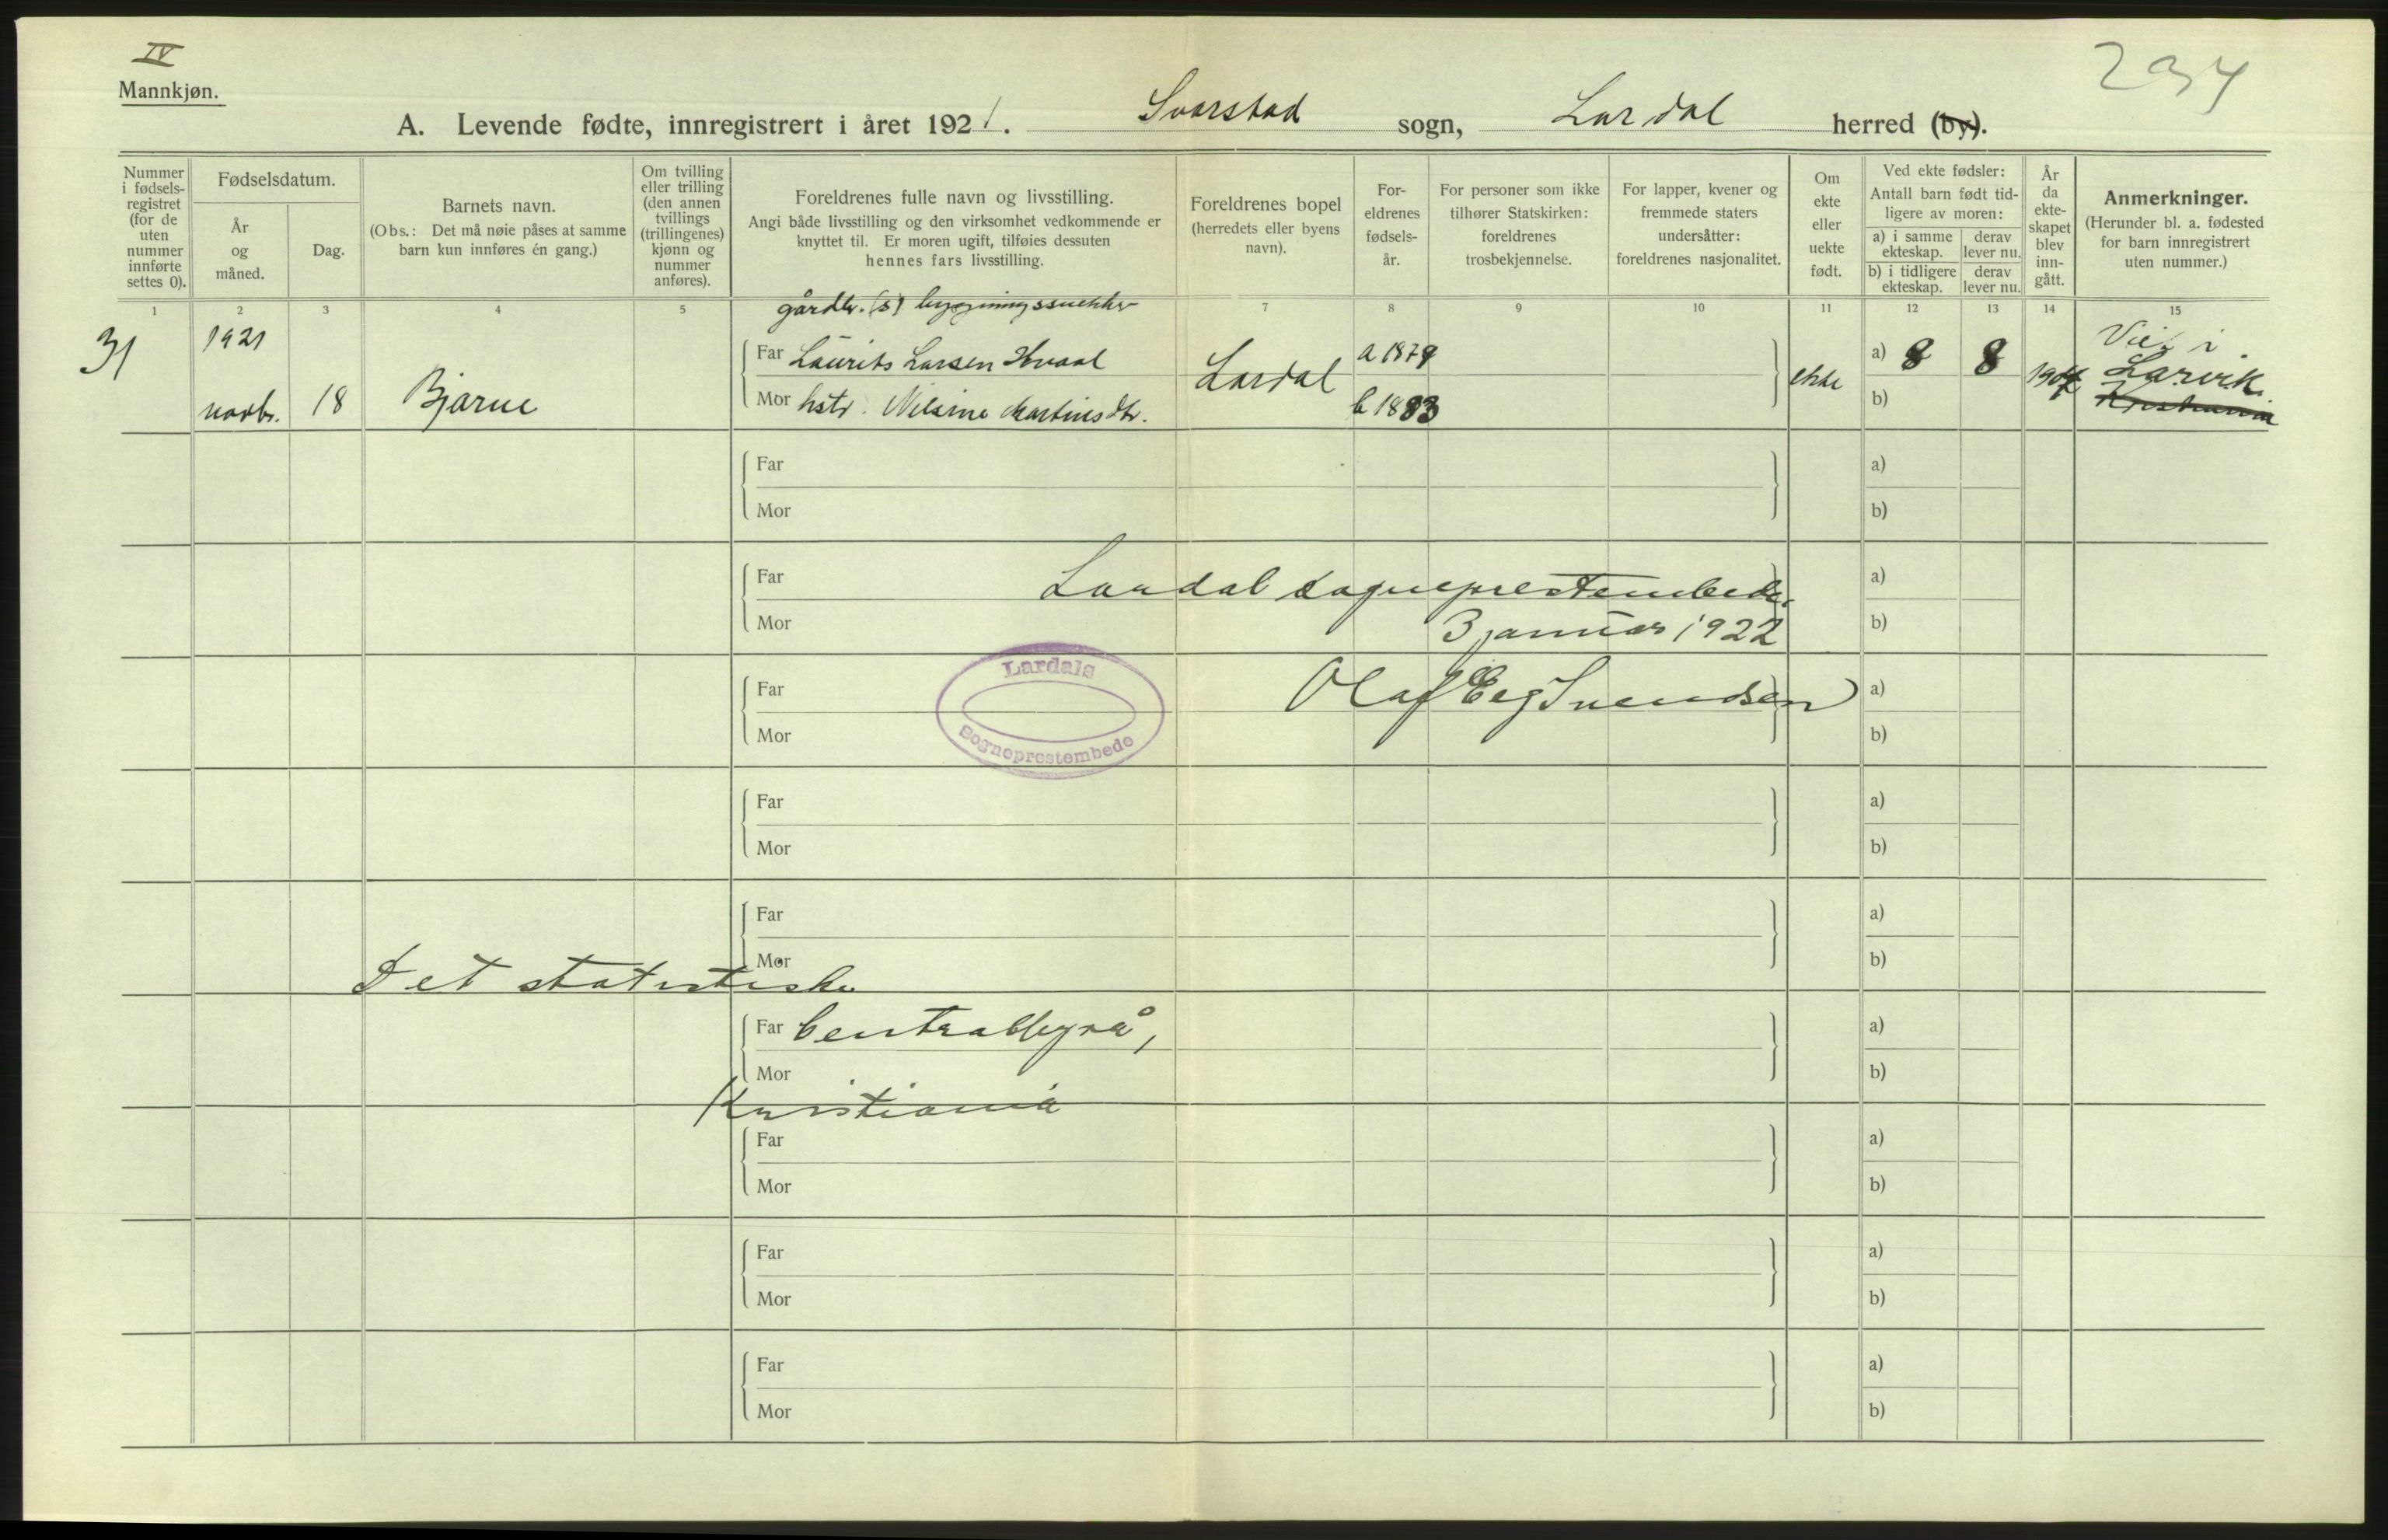 IV
Mannkjøn.
234
A. Levende fødte, innregistrert i året 1921. Svarstad sogn, Lardal herred (by).
Nummer i fødsels-registret (for de uten nummer innførte settes 0).
Fødselsdatum.
År og måned.
Dag.
Barnets navn.
(Obs.: Det må nøie påses at samme barn kun innføres én gang.)
Om tvilling eller trilling (den annen tvillings (trillingenes) kjønn og nummer anføres).
Foreldrenes fulle navn og livsstilling.
Angi både livsstilling og den virksomhet vedkommende er knyttet til. Er moren ugift, tilføies dessuten hennes fars livsstilling.
Foreldrenes bopel (herredets eller byens navn).
For-eldrenes fødsels-år.
For personer som ikke tilhører Statskirken: foreldrenes trosbekjennelse.
For lapper, kvener og fremmede staters undersåtter: foreldrenes nasjonalitet.
Om ekte eller uekte født.
Ved ekte fødsler:
Antall barn født tid-ligere av moren:
a) i samme ekteskap.
derav lever nu.
b) i tidligere ekteskap.
derav lever nu.
År da ekte-skapet blev inn-gått.
Anmerkninger.
(Herunder bl. a. fødested for barn innregistrert uten nummer.)
1 2 3 4 5 7 8 9 10 11 12 13 14 15
gårdbr. (s) bygningssnekker
31 1921 novbr. 18 Bjarne
Far Laurits Larsen Kvaal
Mor hstr. Nilsine Martinsdtr.
Lardal
a 1879
b 1883
ekte
a) 8 8
b)
1904
Viet i
Larvik.
Kristiania
Far a)
Mor b)
Far a)
Mor b)
Lardal sogneprestembede.
3 januar 1922
Olaf Eeg Svendsen
Lardals
Sogneprestembede
Far a)
Mor b)
Far a)
Mor b)
Far a)
Mor b)
Det statistiske
Far Centralbyrå, a)
Mor b)
Kristiania
Far a)
Mor b)
Far a)
Mor b)
Far a)
Mor b)